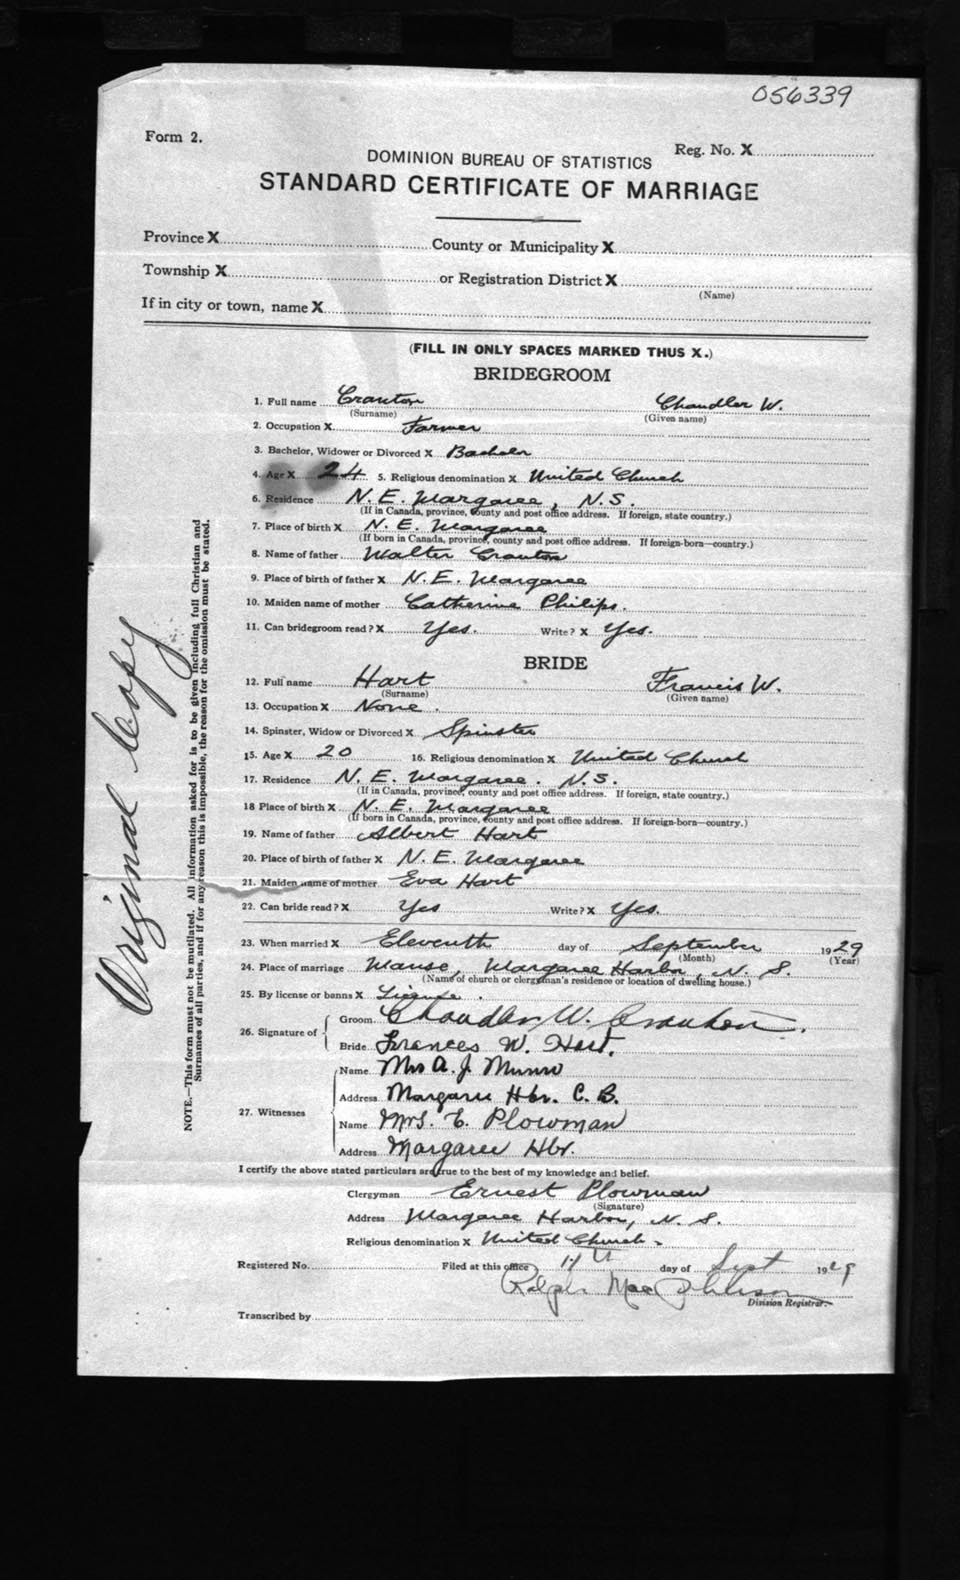 056339
Form 2.
Reg. No. X
DOMINION BUREAU OF STATISTICS
STANDARD CERTIFICATE OF MARRIAGE
Province X County or Municipality X
Township X or Registration District X
(Name)
If in city or town, name X
(FILL IN ONLY SPACES MARKED THUS X.)
BRIDEGROOM
1. Full name Cranton Chandler W.
(Surname) (Given name)
2. Occupation X Farmer
3. Bachelor, Widower or Divorced X Bachelor
4. Age X 24 5. Religious denomination X United Church
6. Residence N. E. Margaree, N.S.
(If in Canada, province, county and post office address. If foreign, state country.)
7. Place of birth X N. E. Margaree
(If born in Canada, province, county and post office address. If foreign-born—country.)
8. Name of father Walter Cranton
9. Place of birth of father X N. E. Margaree
10. Maiden name of mother Catherine Philips.
11. Can bridegroom read? X Yes. Write? X Yes.
BRIDE
12. Full name Hart Francis W.
(Surname) (Given name)
13. Occupation X None.
14. Spinster, Widow or Divorced X Spinster
15. Age X 20 16. Religious denomination X United Church
17. Residence N. E. Margaree. N.S.
(If in Canada, province, county and post office address. If foreign, state country.)
18 Place of birth X N. E. Margaree
(If born in Canada, province, county and post office address. If foreign-born—country.)
19. Name of father Albert Hart
20. Place of birth of father X N. E. Margaree
21. Maiden name of mother Eva Hart
22. Can bride read? X Yes Write? X Yes.
23. When married X Eleventh day of September 1929
(Month) (Year)
24. Place of marriage Manse, Margaree Harbor, N. S.
(Name of church or clergyman's residence or location of dwelling house.)
25. By license or banns X License.
26. Signature of Groom Chandler W. Cranton.
Bride Frances W. Hart.
27. Witnesses
Name Mrs A. J. Munro
Address Margaree Hbr. C. B.
Name Mrs. E. Plowman
Address Margaree Hbr.
I certify the above stated particulars are true to the best of my knowledge and belief.
Clergyman Ernest Plowman
(Signature)
Address Margaree Harbor, N. S.
Religious denomination X United Church.
Registered No. Filed at this office day of Sept 1929
Ralph Mac
Division Registrar.
Transcribed by
Original Copy
NOTE.—This form must not be mutilated. All information asked for is to be given including full Christian and
Surnames of all parties, and if for any reason this is impossible, the reason for the omission must be stated.